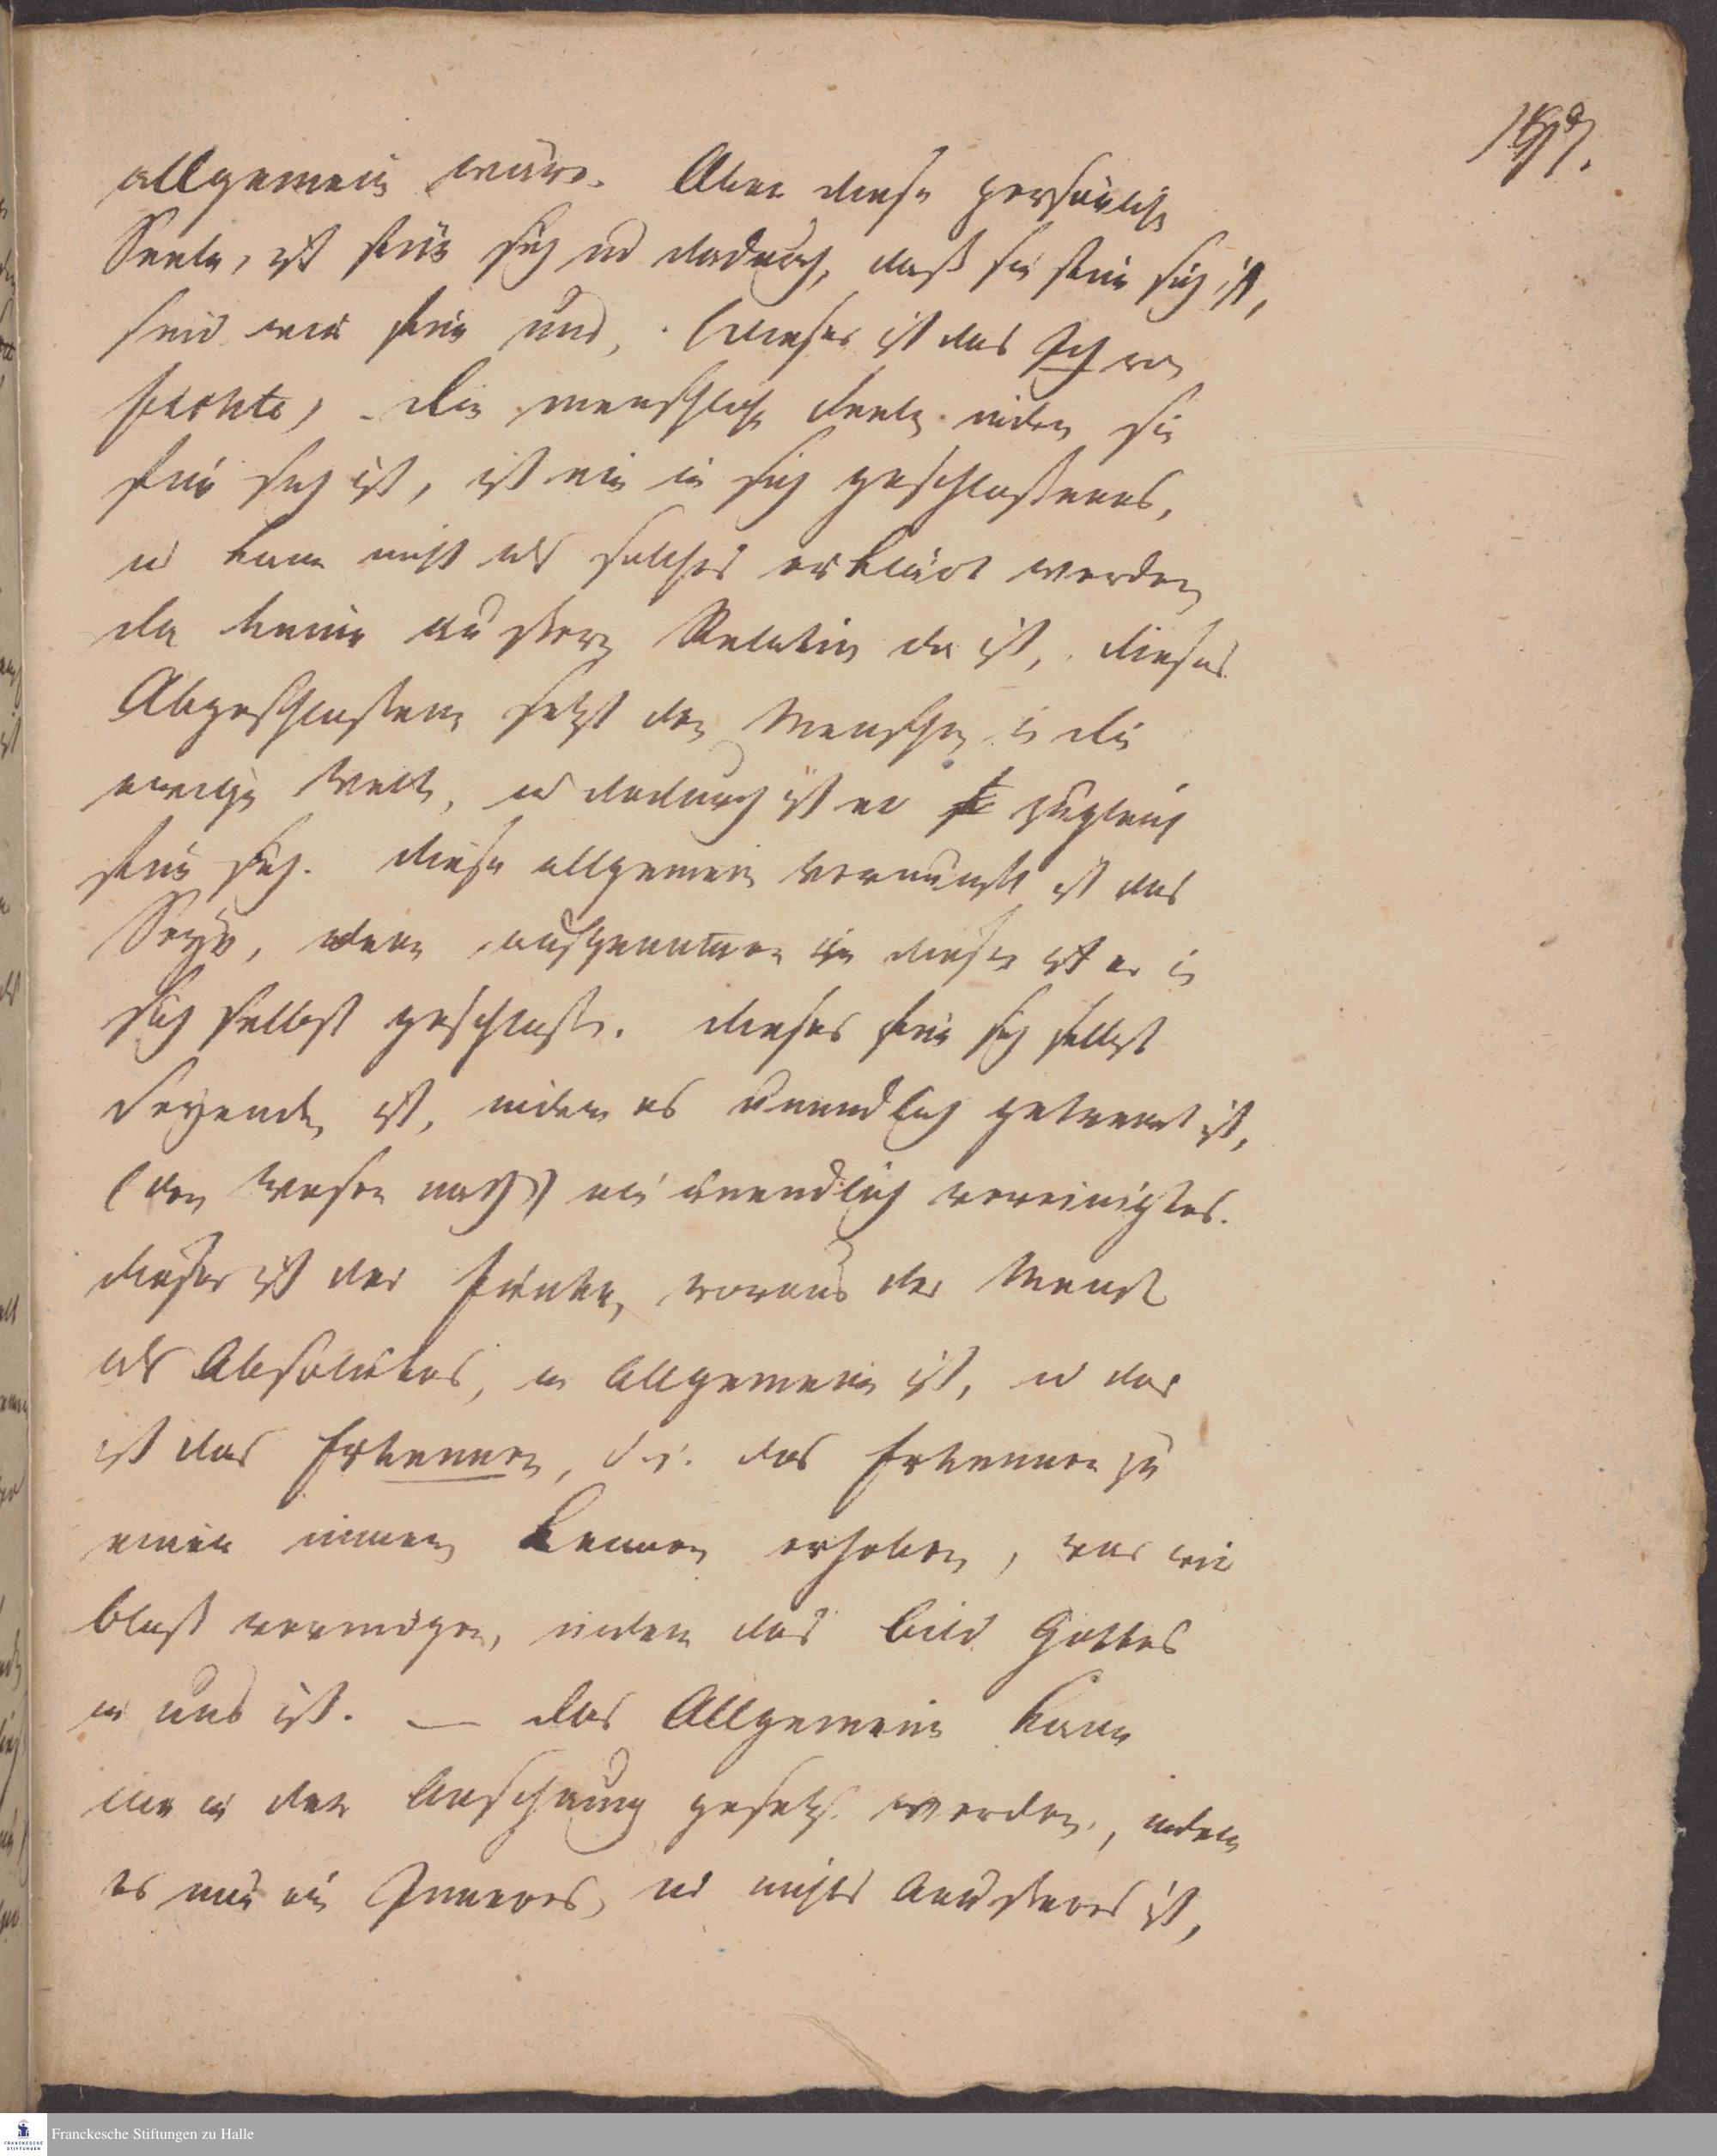 allgemein wäre. Aber diese persönliche
Seele, ist für sich und dadurch, daß sie für sich ist,
sind wir für uns, (dieses ist das Ich von
Fichte) – die menschliche Seele indem sie
für sich ist, ist ein in sich geschlossenes,
u kann nicht als solches erklärt werden
da keine äussere Relation da ist, dieses
Abgeschlossene setzt den Menschen in die
ewige Welt, u dadurch ist er zugleich
für sich. diese allgemeine Vernunft ist das
Seyn, denn aufgenommen in dieser ist er in
sich selbst geschlossen. dieses für sich selbst
Seyende, ist, indem es unendlich getrennt ist,
(dem Wesen nach) ein unendlich vereinigtes.
dieses ist der Funke, woraus der Mensch
als Absolutes, u Allgemein ist, u das
ist das Erkennen, d.i. das Erkennen zu
einem innern Kennen erhoben, was wir
bloß vermögen, indem das Bild Gottes
in uns ist. — das Allgemeine kann
nur in der Anschauung gesetzt werden, indem
es nur ein Inneres, u nichts Aeusseres ist,
Franckesche Stiftungen zu Halle